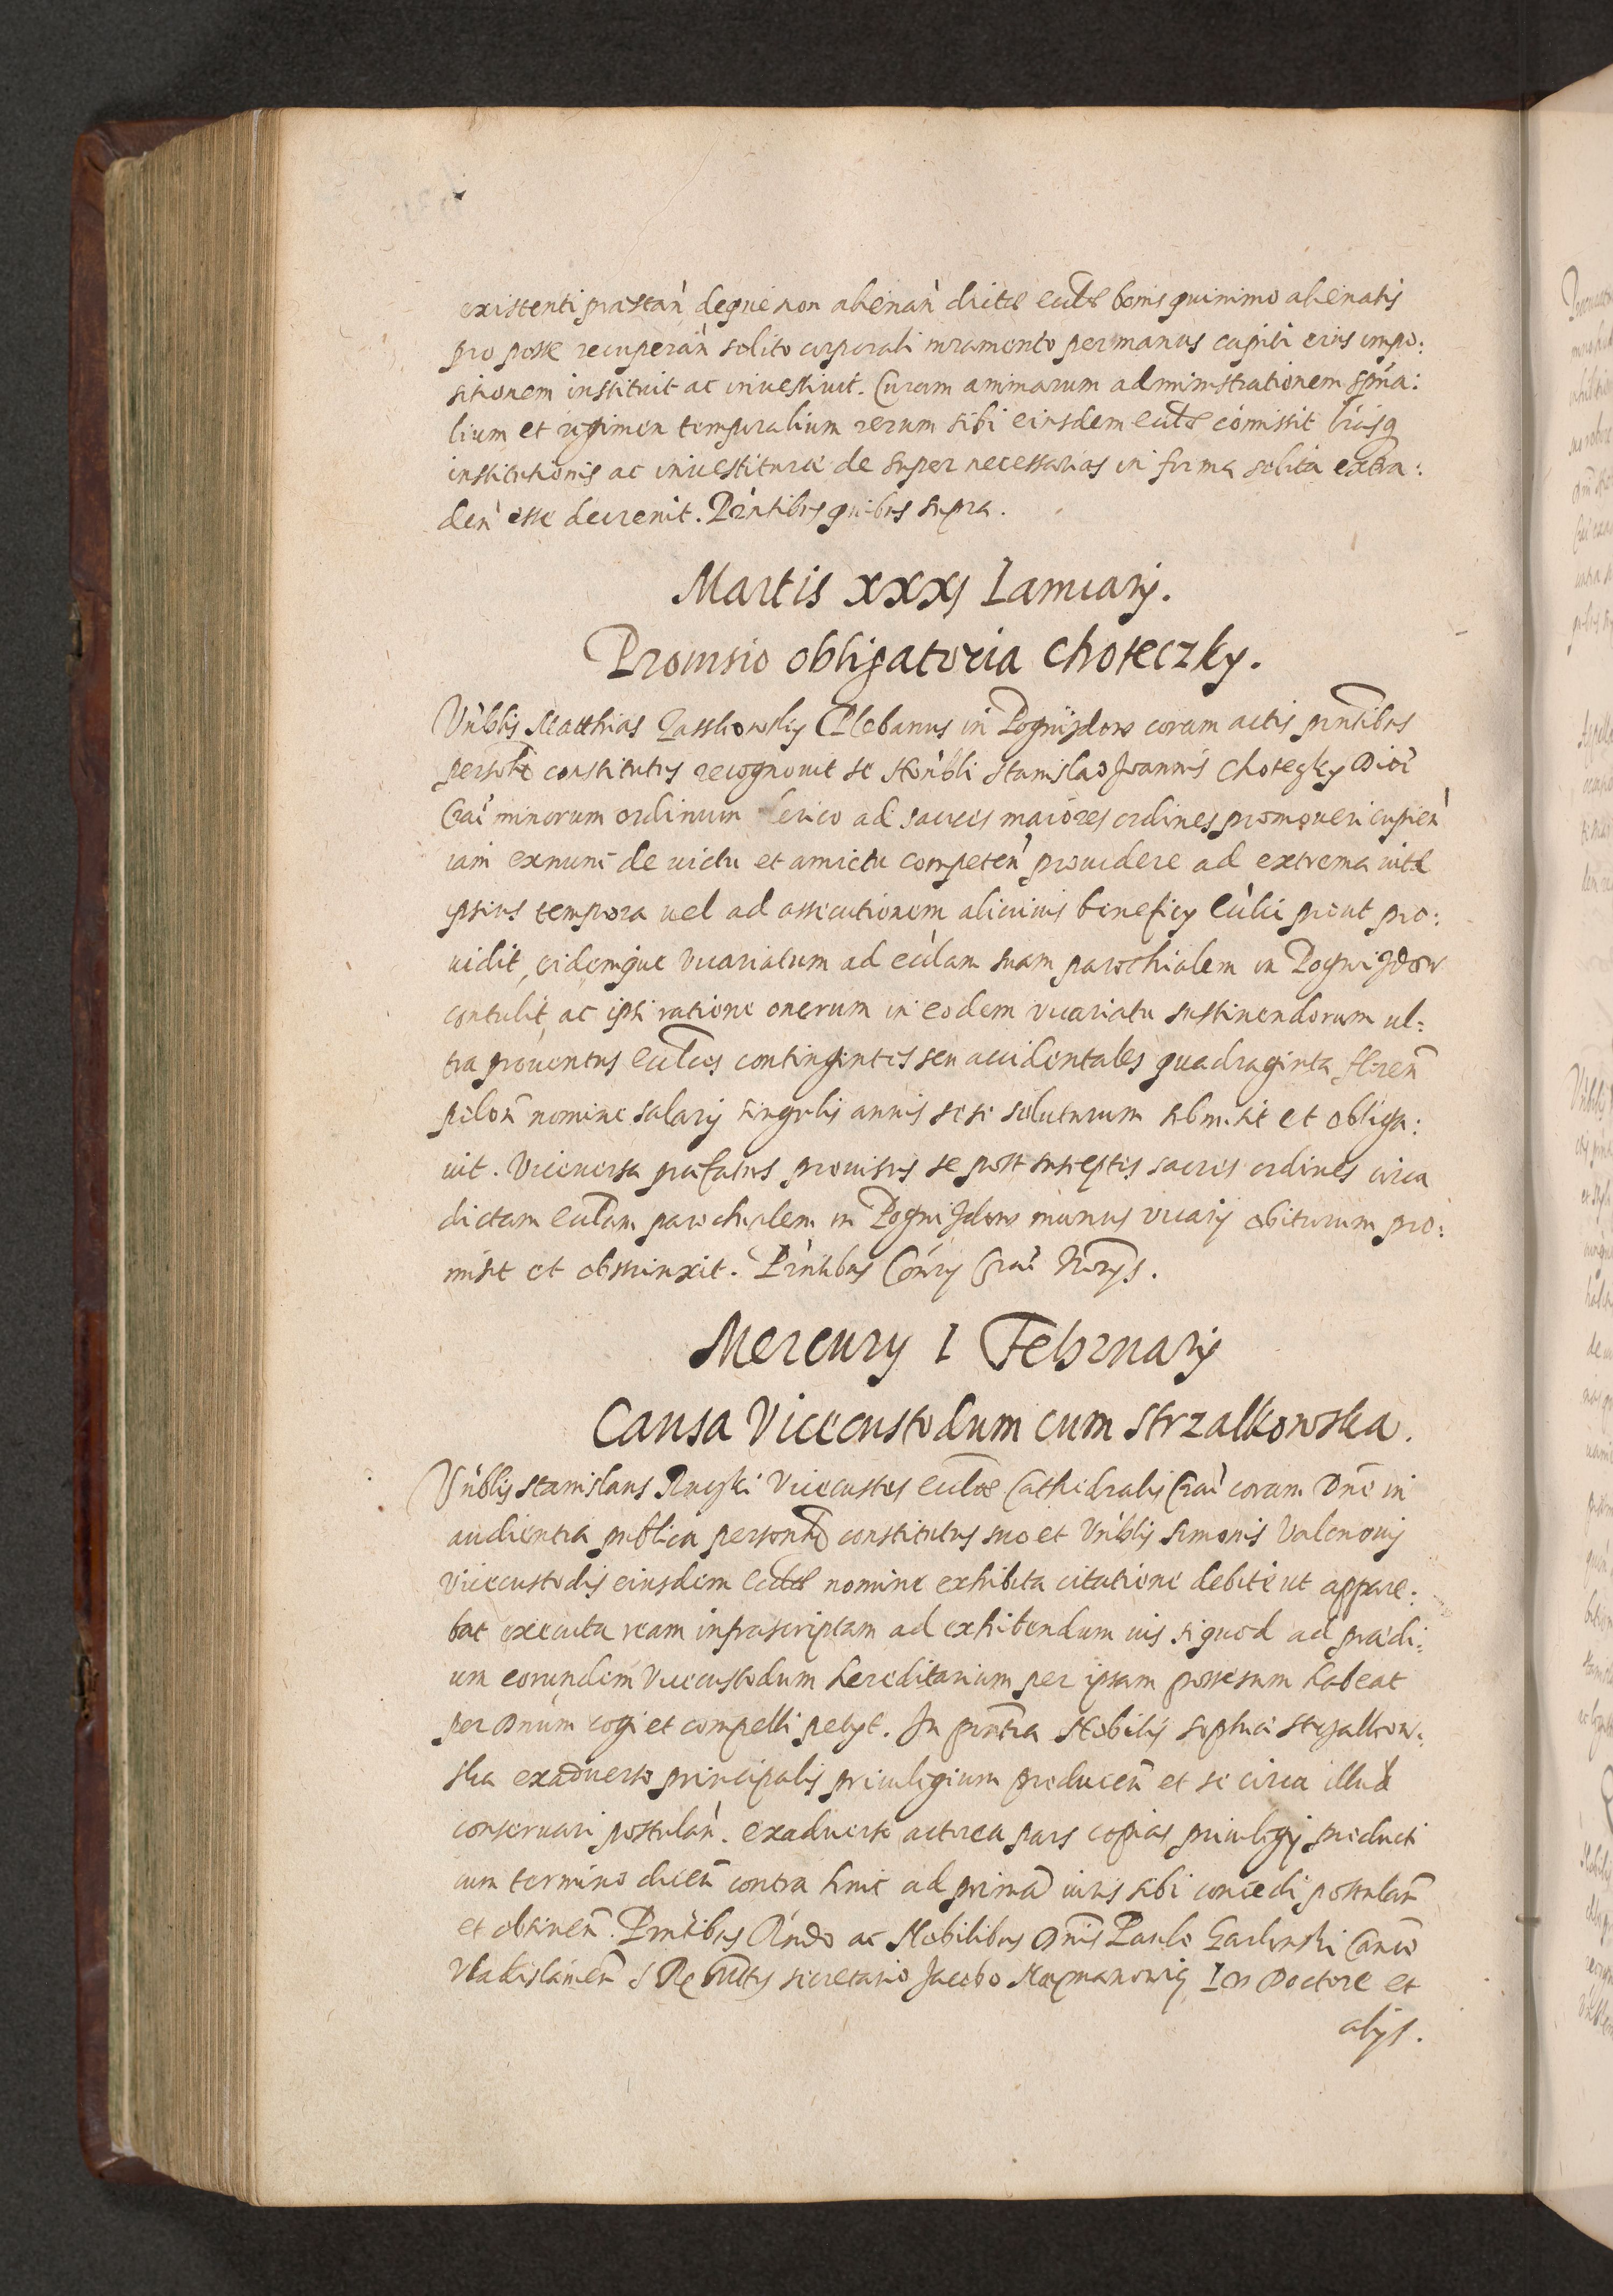 existenti prǽstan̄ deque non alienan̄ dictæ eccłæ bonis quinimo alienatis
pro posse recuperan̄ solito corporali iuramento per manus capiti eius impo:
sitionem instituit ac inuestiuit. Curam animarum administrationem sp̄ua:
lium et regimen temporalium rerum sibi eiusdem eccłæ com̄isit l̄rasq
institutionis ac inuestituræ de super necessarias in forma solita extra:
den̄ esse decreuit. Pn̄tibus quibus supra.
Martis xxxj Ianuarij.
Prouisio obligatoria Choteczky.
Vn̄blis Matthias Plebanus in Pogwizdow coram actis pn̄tibus
personał̄r constitutus recognouit se Hon̄bli Stanislao Joannis Choteczky Diœ̄
Crac̄ minorum ordinum clerico ad sacros maiores ordines promoueri cupien̄
iam exnunc de uictu et amictu competen̄ prouidere ad extrema uitæ
ipsius tempora uel ad assecutionem alicuius beneficij eccl̄ici prout pro:
uidit, eidemque vicariatum ad eccl̄am suam parochialem in Pogwizdow
contulit, ac ipsi ratione onerum in eodem vicariatu sustinendorum ul:
tra prouentus eccl̄icos contingentes seu accidentales quadraginta floren̄
polon̄ nomine salarij singulis annis sese soluturum submisit et obliga:
uit. Viceuersa præfatus prouisus se post susceptos sacros ordines circa
dictam eccl̄am parochialem in Pogwizdow munus vicarij obiturum pro:
misit et obstrinxit. Pn̄tibus Con̄rij Crac̄ Notrijs.
Mercurij I Februarij
Causa Vicecustodum cum Strzalkowska.
Vn̄blis Stanislaus Ruczki Vicecustos eccłæ Cathedralis Crac̄ coram Dn̄o in
audientia publica personał̄r constitutus suo et Vn̄blis Simonis Valenouij
Vicecustodis eiusdem eccłæ nomine exhibita citatione debite ut appare:
bat executa ream infrascriptam ad exhibendum ius si quod ad prædi:
um eorundem Vicecustodum hereditarium per ipsam possessum habeat
per Dnum̄ cogi et compelli petijt. In pn̄tia Nobilis Sophiæ Strzalkow:
ska exaduerso principalis priuilegium producen̄ et se circa illud
conseruari postulan̄. exaduerso actorea pars copias priuilegij producti
cum termino dicen̄ contra hinc ad primā iuris sibi concedi postulan̄
et obtinen̄. Pn̄tibus R̄ndo ac Nobilibus Dn̄is Paulo Can̄co
Vladislauien̄ S Re M̄ttis secretario Jacobo Naymanowicz I V Doctore et
alijs.